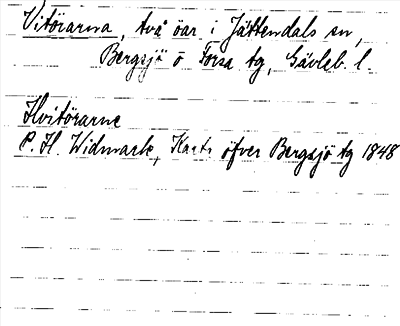 Vitörarna, två öar i Jättendals sn,
Bergsjö o Forsa tg, Gävleb. l.
Hvitörarne
P. H. Widmark, Karta öfver Bergsjö tg 1848